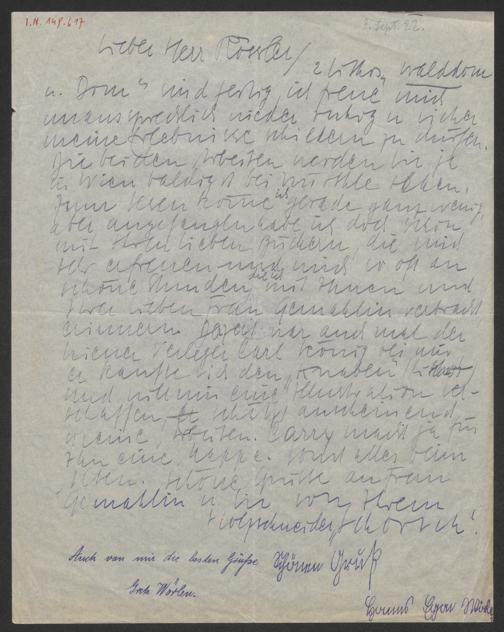 I.N. 149.617
3. Sept. 22.
Lieber Herr Roessler,
2 Lithos, Walddom
u. Dom" sind fertig, ich freue mich
unaussprechlich wieder ruhig u sicher
meine Erlebnisse schildern zu dürfen.
Die beiden Arbeiten werden Sie ja
in Wien baldigst bei Würthle sehen.
Zum Lesen komme ich gerade ganz wenig,
aber angefangen habe ich doch schon
mit Ihren lieben Büchern, die mich
sehr erfreuen und mich so oft an
schöne Stunden, die ich mit Ihnen und
Ihrer lieben Frau Gemahlin verbracht
erinnern. war auch mal der
Wiener Verleger Carl König bei mir
er kaufte sich den „Knaben"
und will mir eine Illustration ver-
schaffen, er schätzt anscheinend
meine Arbeiten. Carry macht ja für
ihn eine Mappe. Sonst alles beim
Alten. Schöne Grüße an Frau
Gemahlin u. Sie von Ihrem
Holzschneider „Schorsch".
Auch von mir die besten Grüße
Grete Wörlen.
Schönen Gruß
Hanns